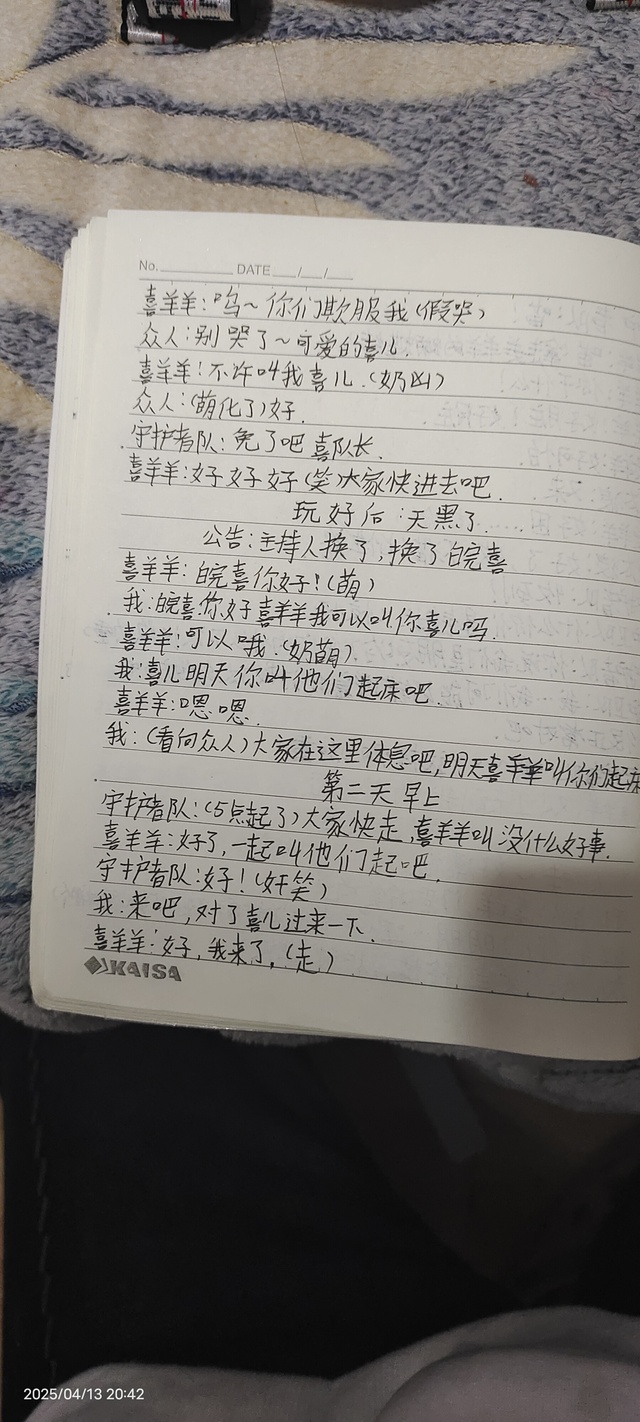 No. DATE / /
喜羊羊:呜~你们欺服我(假哭)
众人:别哭了~可爱的喜儿.
喜羊羊!不许叫我喜儿.(奶凶)
众人:(萌化了)好.
守护者队:免了吧喜队长.
喜羊羊:好好好(笑)大家快进去吧.
玩好后:天黑了.
公告:主持人换了,换了皖喜
喜羊羊:皖喜你好!(萌)
我:皖喜你好喜羊羊我可以叫你喜儿吗.
喜羊羊!可以哦.(奶萌)
我:喜儿明天你叫他们起床吧.
喜羊羊:嗯嗯.
我:(看向众人)大家在这里体息吧,明天喜羊羊叫你们起床
第二天早上
守护者队:(5点起了)大家快走,喜羊羊叫没什么好事.
喜羊羊:好了,一起叫他们起吧.
守护者队:好!(奸笑)
我:来吧,对了喜儿过来一下.
喜羊羊:好,我来了,(走)
KAISA
2025/04/13 20:42